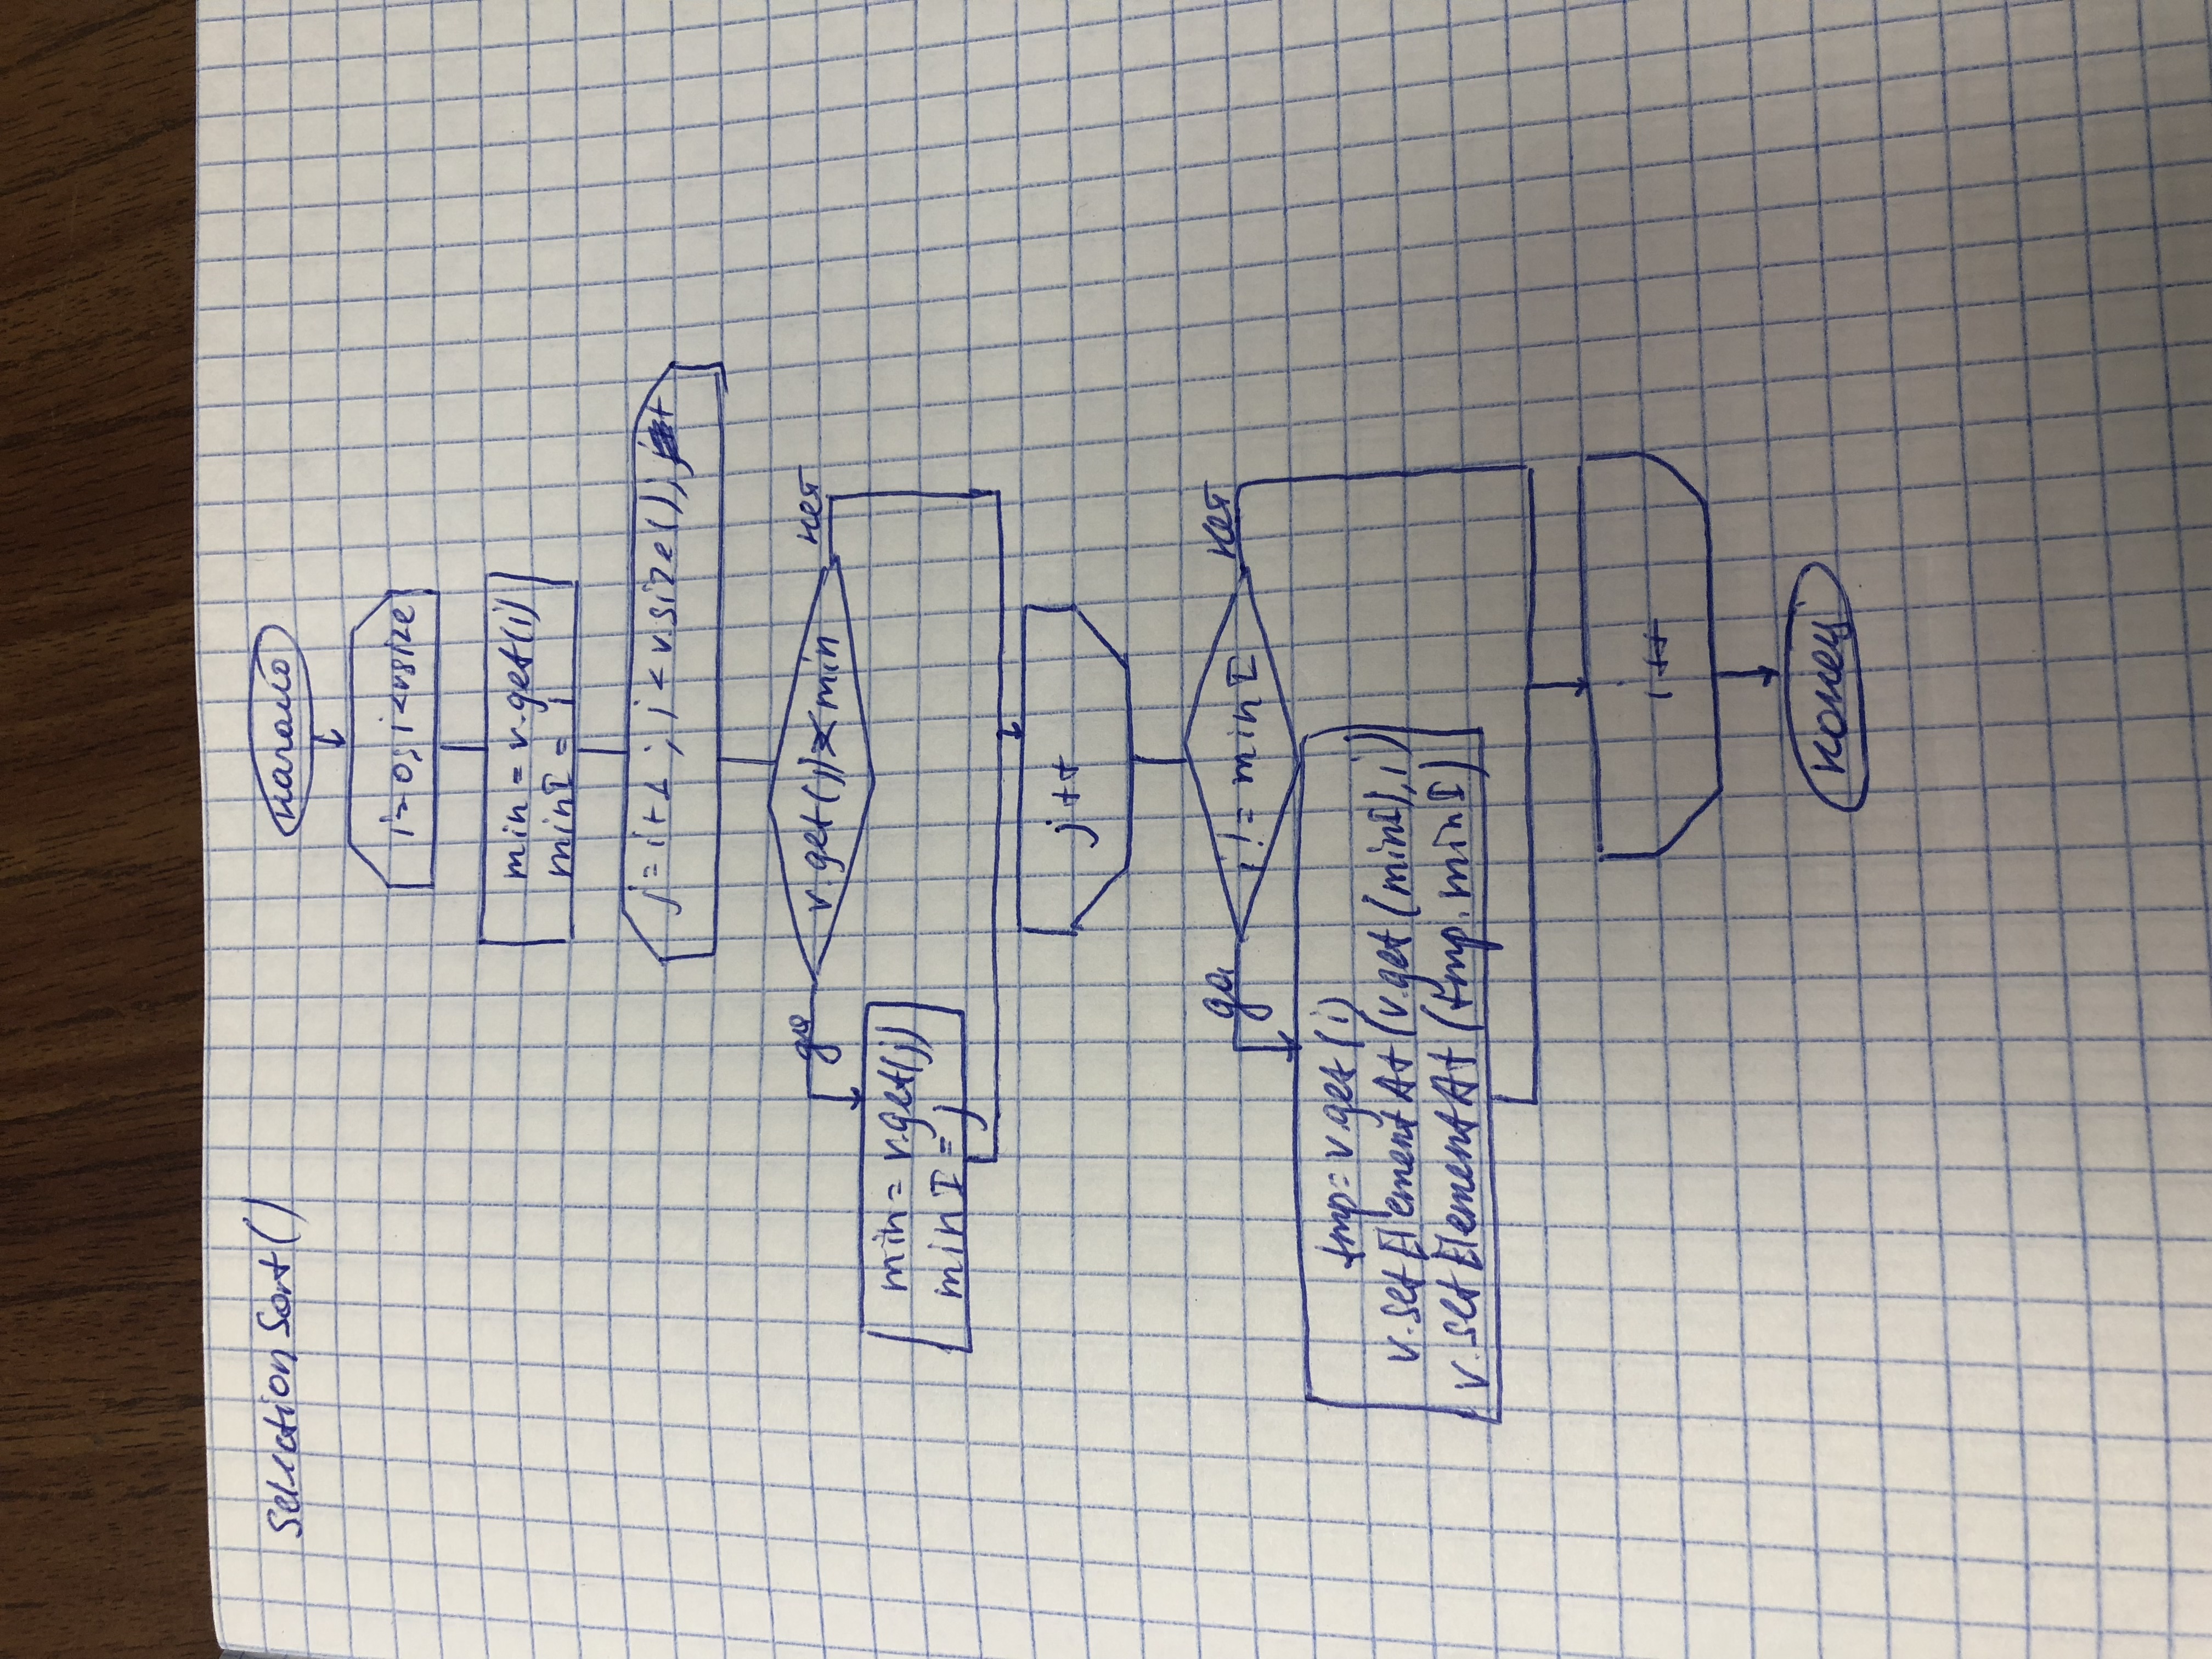 SelectionSort()
начало
i=0; i<vsize
min = v.get(i)
minI = i
j=i+1; j<v.size();
v.get(j)<min
да
нет
min=v.get(j)
minI=j
j++
i!=minI
да
нет
tmp=v.get(i)
v.setElementAt(v.get(minI),i)
v.setElementAt(tmp.minI)
i++
конец